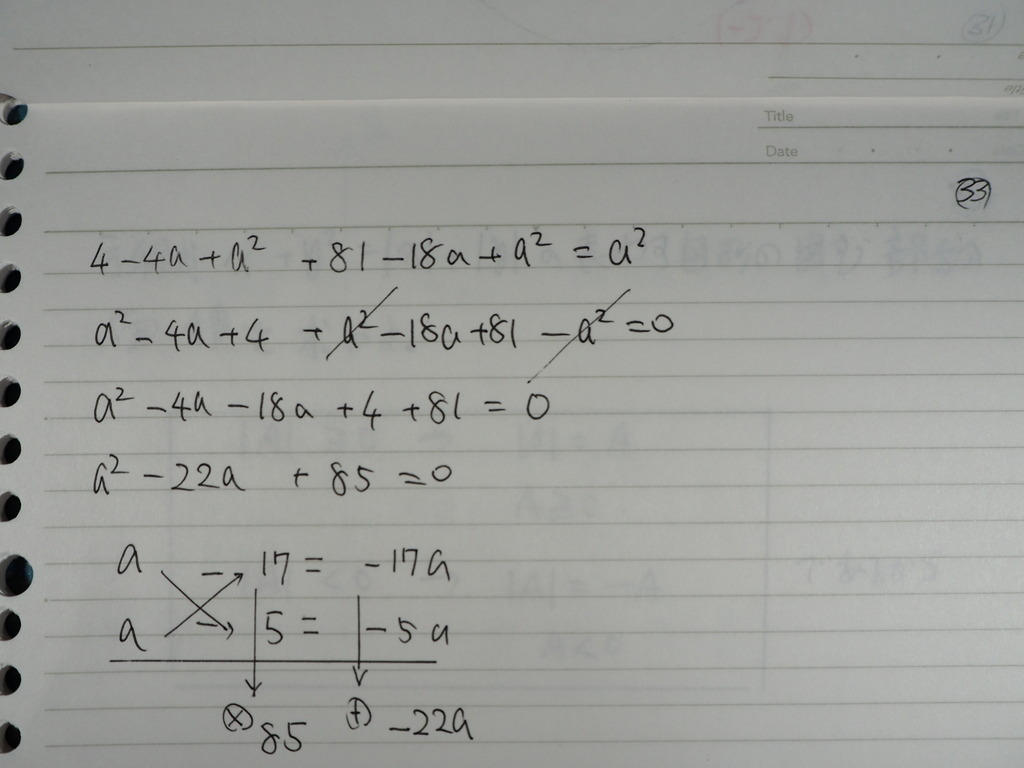 (31)
Title
Date
(33)
4 - 4a + a² + 81 - 18a + a² = a²
a² - 4a + 4 + a² - 18a + 81 - a² = 0
a² - 4a - 18a + 4 + 81 = 0
a² - 22a + 85 = 0
a - 17 = -17a
a - 5 = -5a
⊗ 85 ⊕ -22a